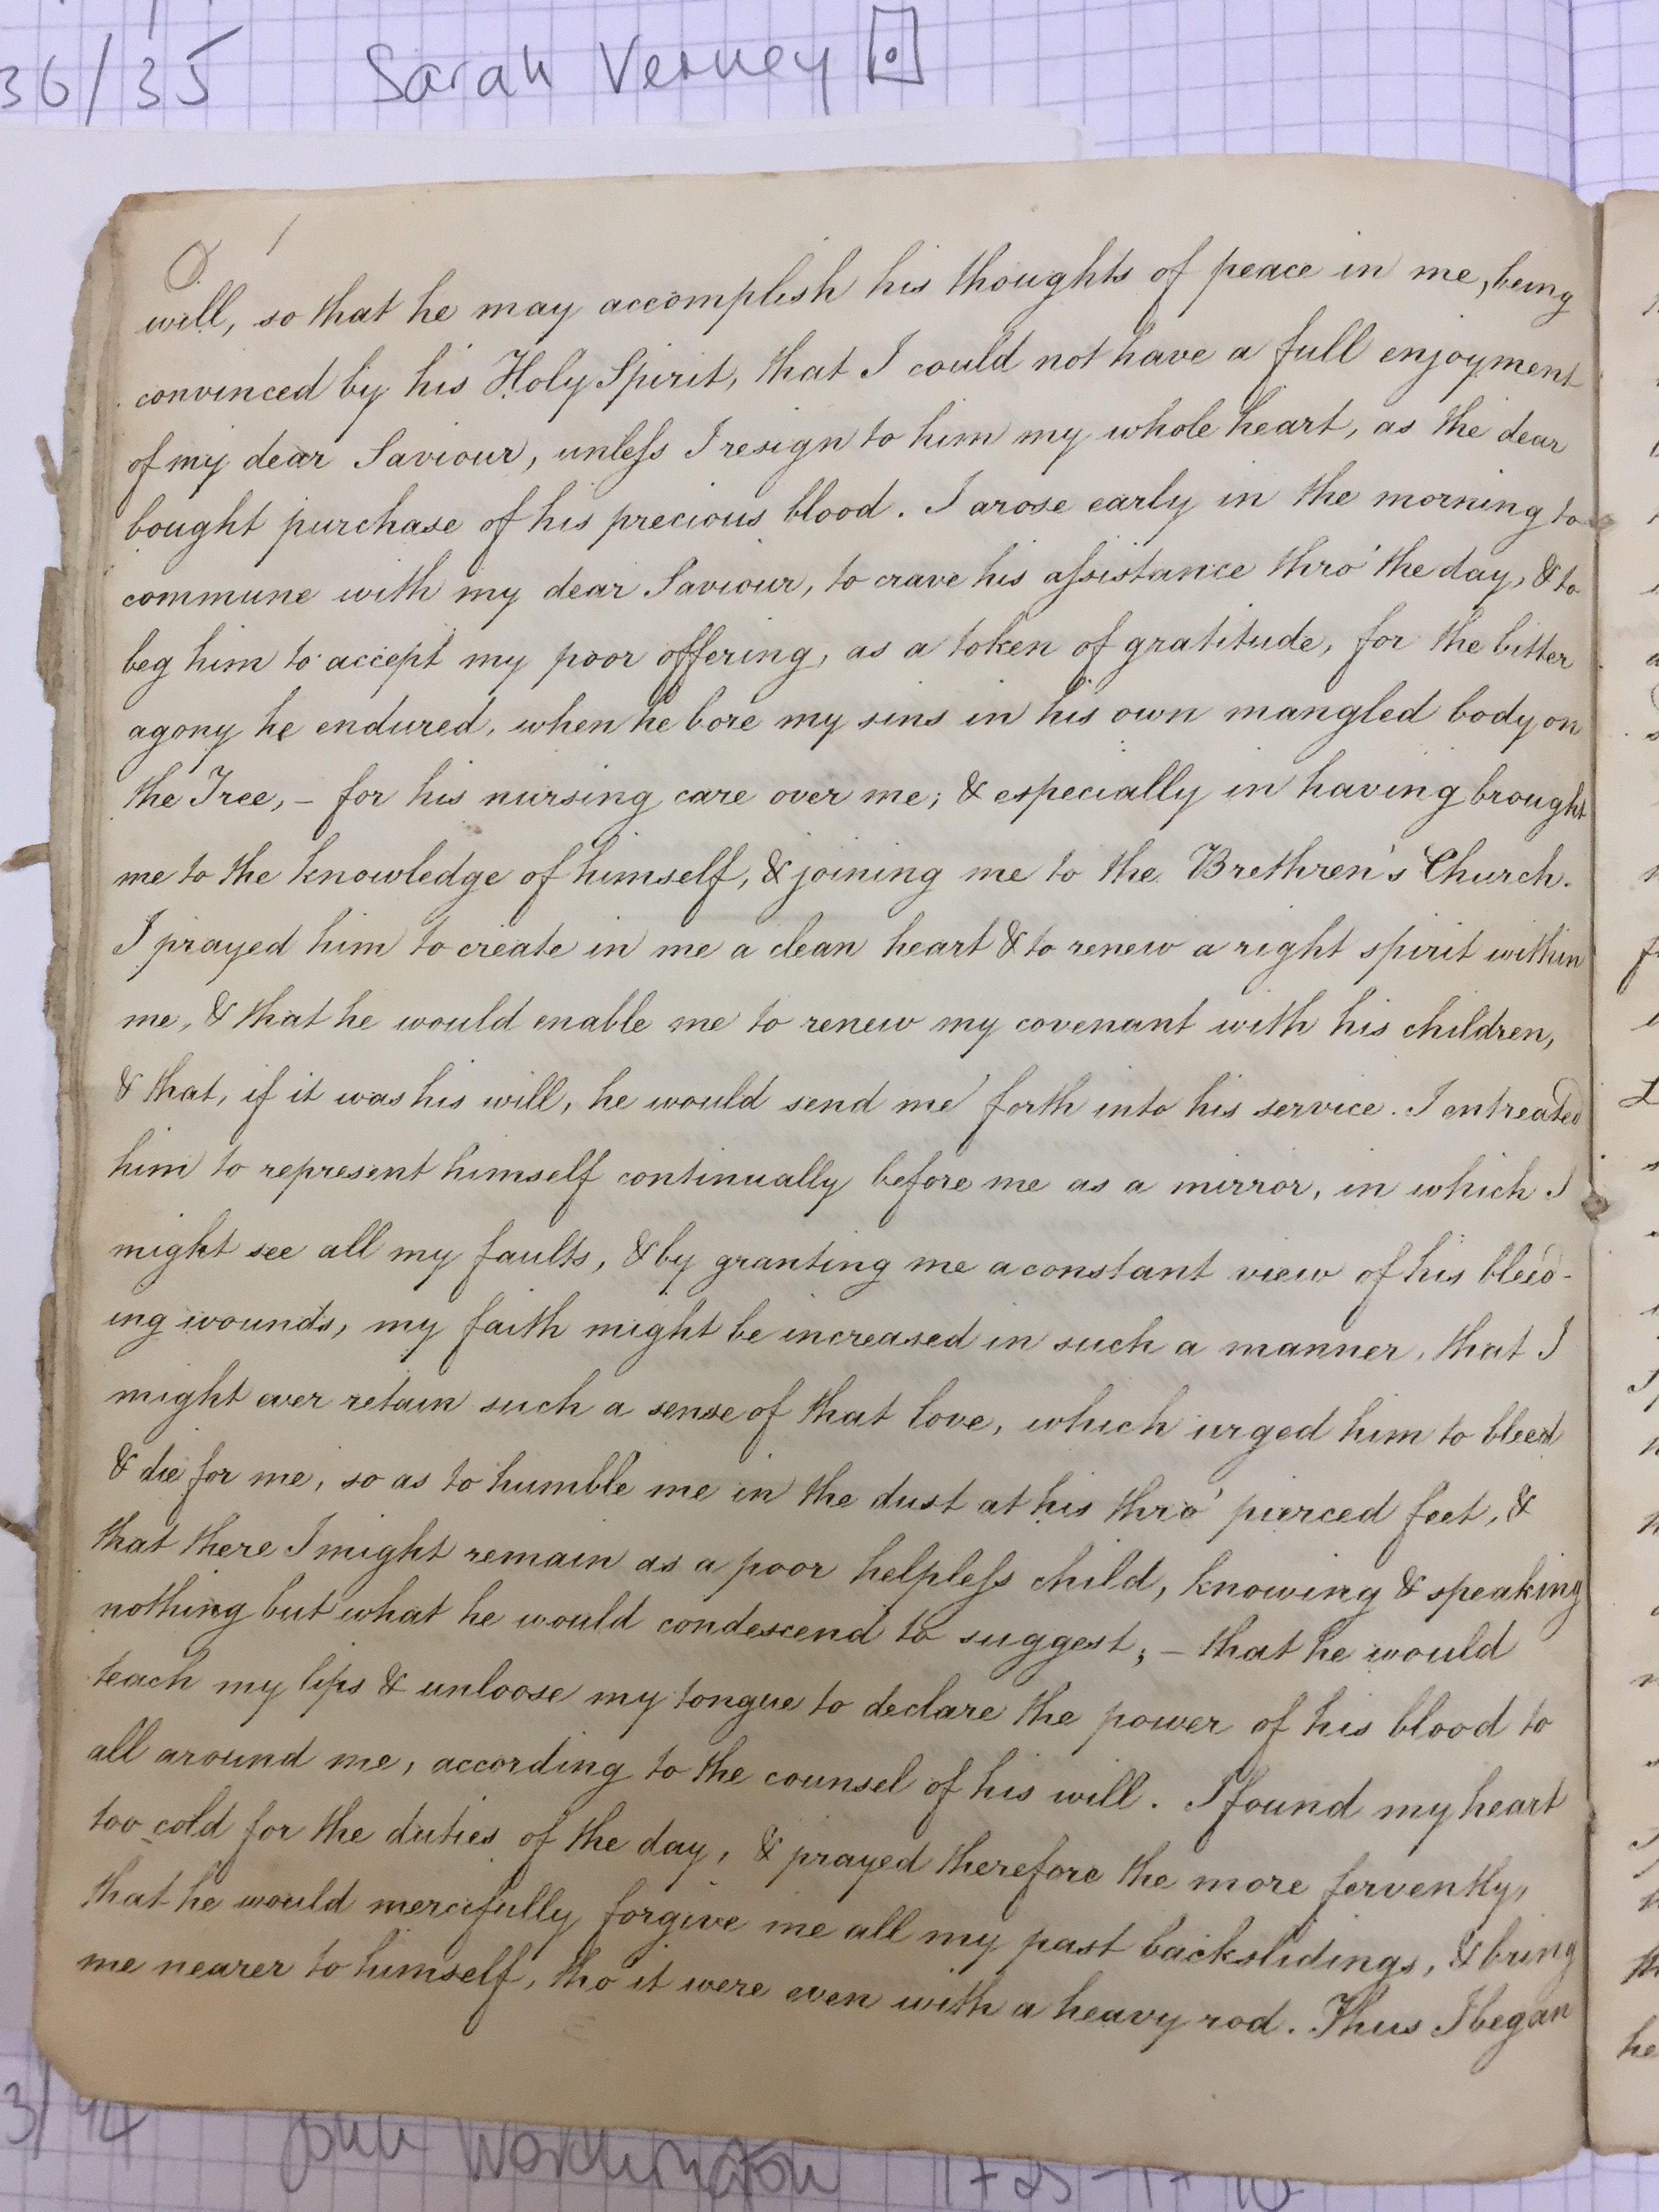 36/35 Sarah Verney
will, so that he may accomplish his thoughts of peace in me, being
convinced by his Holy Spirit, that I could not have a full enjoyment
of my dear Saviour, unleſs I resign to him my whole heart, as the dear
bought purchase of his precious blood. I arose early in the morning to
commune with my dear Saviour, to crave his aſsistance thro' the day, & to
beg him to accept my poor offering, as a token of gratitude, for the bitter
agony he endured, when he bore my sins in his own mangled body on
the Tree, – for his nursing care over me; & especially in having brought
me to the knowledge of himself, & joining me to the Brethren's Church.
I prayed him to create in me a clean heart & to renew a right spirit within
me, & that he would enable me to renew my covenant with his children,
& that, if it was his will, he would send me forth into his service. I entreated
him to represent himself continually before me as a mirror, in which I
might see all my faults, & by granting me a constant view of his bleed-
ing wounds, my faith might be increased in such a manner, that I
might ever retain such a sense of that love, which urged him to bleed
& die for me, so as to humble me in the dust at his thro' pierced feet, &
that there I might remain as a poor helpleſs child, knowing & speaking
nothing but what he would condescend to suggest; – that he would
teach my lips & unloose my tongue to declare the power of his blood to
all around me, according to the counsel of his will. I found my heart
too cold for the duties of the day, & prayed therefore the more fervently,
that he would mercifully forgive me all my past backslidings, & bring
me nearer to himself, tho it were even with a heavy rod. Thus I began
John